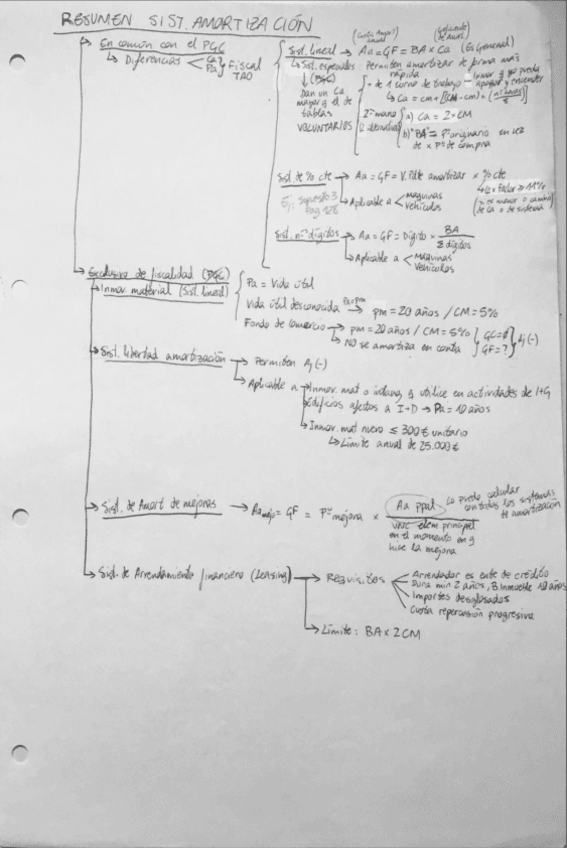 RESUMEN SIST. AMORTIZACIÓN
En común con el PGC
Diferencias < Ca Pa } Fiscal TAO
(Cuota Anual)
Sist. lineal → Aa = GF = BA x Ca (Es General)
Sist. especiales: Permiten amortizar de forma más rápida
(PGC)
Dan un Ca mayor q el de tablas
VOLUNTARIOS
+ de 1 turno de trabajo - Inmov q no pueda apagar y encender
Ca = cm + [(CM - cm) x (nº horas / 8)]
2ª mano
(2 alternativas)
a) Ca = 2 x CM
b) "BA" = Pº originario en vez de x Pº de compra
Sist. de % cte → Aa = GF = V. Pdte amortizar x % cte
Ej: Supuesto 3 Pag 126
Ca x Factor ≥ 11%
(si es menor → cambio de Ca o de sistema)
Aplicable a < Maquinas Vehículos
Sist. nºs dígitos → Aa = GF = Dígito x BA / Σ dígitos
Aplicable a < Maquinas Vehículos
Exclusivo de fiscalidad (PGC)
Inmov. material (Sist. lineal)
Pa = Vida útil
Vida útil desconocida Pa=pm → pm = 20 años / CM = 5%
Fondo de Comercio → pm = 20 años / CM = 5%
NO se amortiza en conta
{ GC = Ø GF = ? } Aj (-)
Sist. libertad amortización → Permiten Aj (-)
Aplicable a → Inmov. mat o intang q utilice en actividades de I+G
Edificios afectos a I+D → Pa = 10 años
Inmov. mat nuevo ≤ 300€ unitario
Límite anual de 25.000€
Sist. de Amort de mejoras → Aa mejo = GF = Pº mejora x Aa ppal
Lo puedo calcular con todos los sistemas de amortización
VNC elem principal en el momento en q hice la mejora
Sist. de Arrendamiento financiero (Leasing) → Requisitos
Arrendador es ente de crédito
Dura min 2 años, B Inmueble 10 años
Importes desglosados
Cuota repercusión progresiva
Límite: BA x 2CM